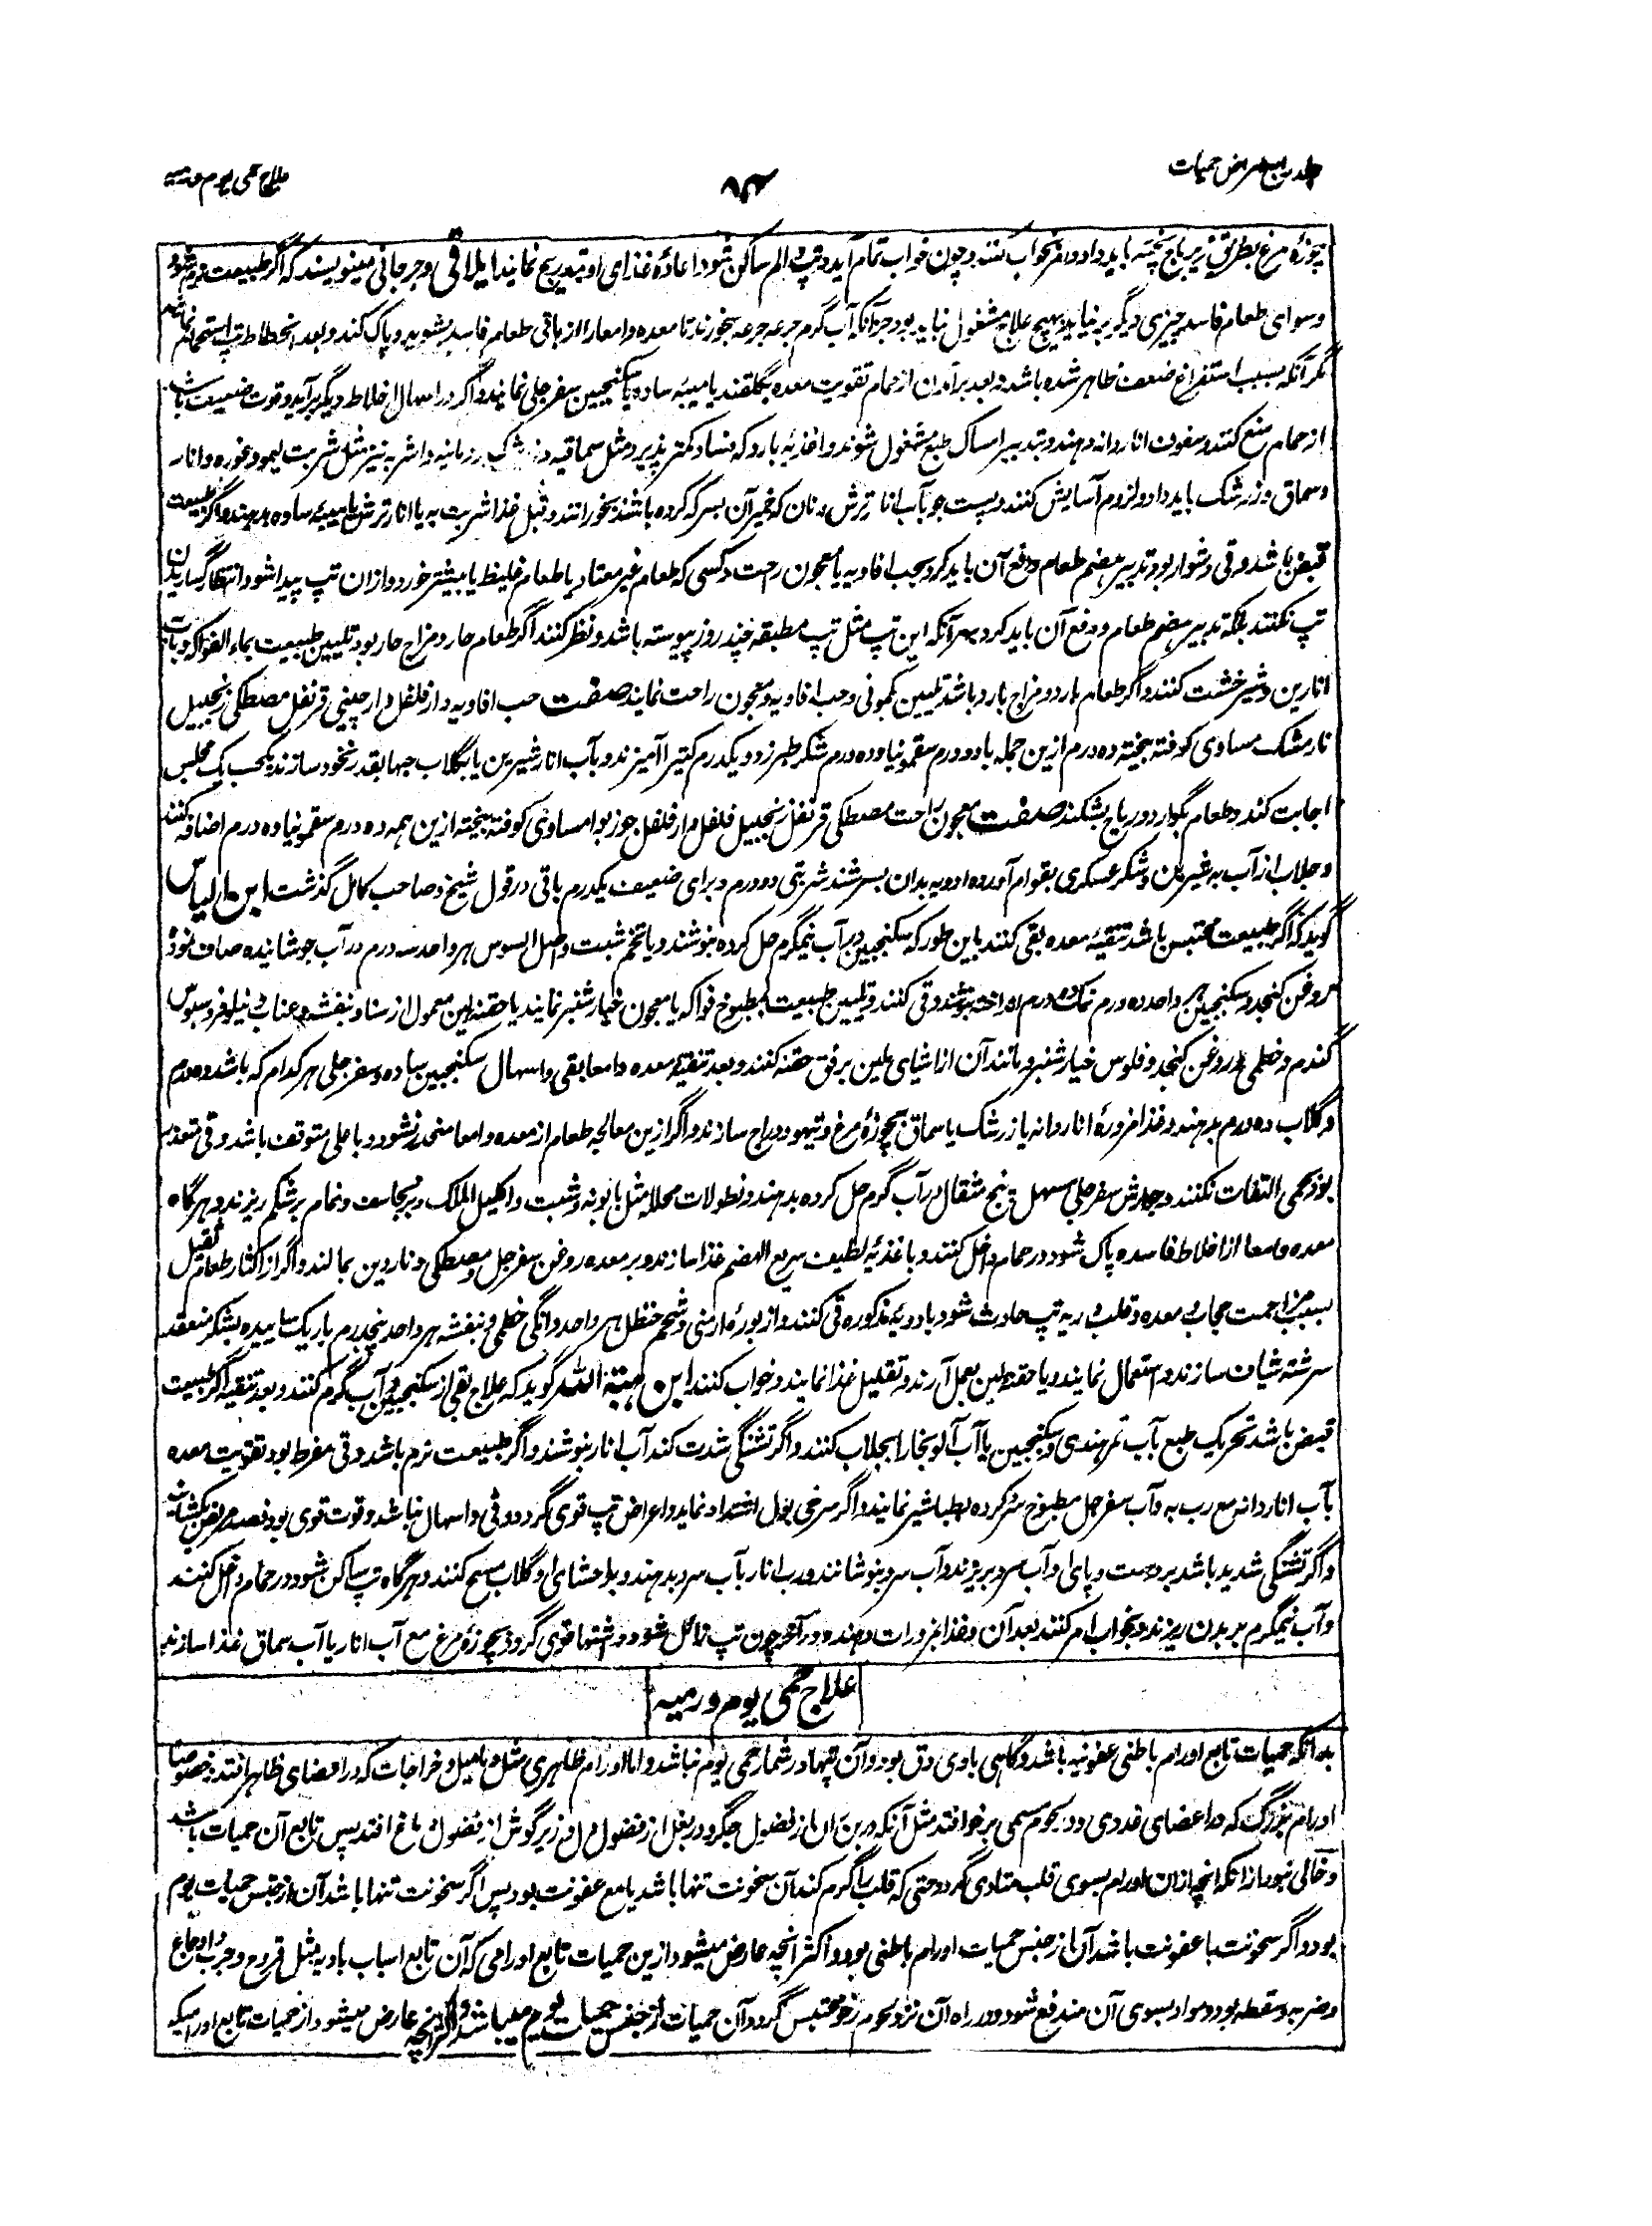 جلد رابع امراض حمیات
۸۴
علاج حمی یوم ورمیه
چوزهٔ مرغ بطریق زیرباج پخته باید داد و امر بخواب کنند و چون خواب تمام آید و تپ و الم ساکن شود اعادهٔ غذای او بتدریج نمایند ایلاقی و جرجانی مینویسند که اگر طبیعت نرم شود
و سوای طعام فاسد چیزی دیگر بر نیاید بهیچ علاج مشغول نباید بود جز آنکه آب گرم جرعه جرعه بخورند تا معده و امعا را از باقی طعام فاسد بشوید و پاک کند و بعد انحطاط تپ استحمام
مگر آنکه بسبب استفراغ ضعف ظاهر شده باشد و بعد برآمدن از حمام تقویت معده بگلقند یا میبه ساده یا سکنجبین سفرجلی نمایند و اگر در اسهال اخلاط دیگر برآید و قوت ضعیف باشد
از حمام منع کنند و سفوف اناردانه دهند و بتدبیر امساک طبع مشغول شوند و اغذیه بارد که فساد کمتر پذیرد مثل سماقیه و زرشک و رمانیه و اشربه نیز مثل شربت لیمو و غوره و انار
و سماق و زرشک باید داد و لزوم آسایش کنند و پست جو بآب انار ترش و نان که خمیر آن بسرکه کرده باشند بخورانند و قبل غذا شربت به یا انار ترش یا میبه ساده بدهند و اگر طبیعت
قبض باشد و قی دشوار بود تدبیر هضم طعام و دفع آن باید کرد بحب افاویه یا معجون راحت و کسی که طعام غیر معتاد یا طعام غلیظ یا بیشتر خورد و ازان تپ پیدا شود انتظار گساریدن
تپ نکنند بلکه تدبیر هضم طعام و دفع آن باید کرد بهر آنکه این تپ مثل تپ مطبقه چند روز پیوسته باشد و نظر کنند اگر طعام حار و مزاج حار بود تلیین طبیعت بماء الفواکه و بآب
انارین و شیرخشت کنند و اگر طعام بارد و مزاج بارد باشد تلیین بکمونی و حب افاویه و معجون راحت نمایند صفت حب افاویه دارفلفل دارچینی قرنفل مصطکی زنجبیل
نارمشک مساوی کوفته بیخته ده درم ازین جمله با دو درم سقمونیا و ده درم شکر طبرزد و یکدرم کتیرا آمیزند و بآب انار شیرین یا بگلاب حبها بقدر نخود سازند یکحب یک مجلس
اجابت کند و طعام بگوارد و ریاح بشکند صفت معجون راحت مصطکی قرنفل زنجبیل فلفل دارفلفل جوزبوا مساوی کوفته بیخته ازین همه ده درم سقمونیا ده درم اضافه کنند
و جلاب از آب به شیرین و شکر عسکری بقوام آورده ادویه بدان بسرشند شربتی دو درم و برای ضعیف یکدرم باقی در قول شیخ و صاحب کامل گذشت ابن الیاس
گوید که اگر طبیعت محتبس باشد تنقیه معده بقی کنند باین طور که سکنجبین در آب نیمگرم حل کرده بنوشند و یا تخم شبت و اصل السوس هر واحد سه درم در آب جوشانیده صاف نموده
روغن کنجد و سکنجبین هر واحد ده درم نمک دو درم انداخته بنوشند و قی کنند و تلیین طبیعت بمطبوخ فواکه یا معجون خیارشنبر نمایند یا حقنه لین معمول از سنا و بنفشه و عناب و نیلوفر و سبوس
گندم و خطمی و روغن کنجد و فلوس خیارشنبر و مانند آن از اشیای ملین برفق حقنه کنند و بعد تنقیه معده و امعا بقی و اسهال سکنجبین ساده و سفرجلی هر کدام که باشد ده درم
در گلاب ده درم بدهند و غذا مزورهٔ اناردانه یا زرشک یا سماق بچوزهٔ مرغ و تیهو و دراج سازند و اگر ازین معالجه طعام از معده و امعا منحدر نشود و باعلی متوقف باشد و قی متعذر
بود بحمی التفات نکنند و جوارش سفرجلی مسهل پنج مثقال در آب گرم حل کرده بدهند و نطولات محلله مثل بابونه و شبت و اکلیل الملک و برنجاسف و نمام بر شکم ریزند و هرگاه
معده و امعا از اخلاط فاسده پاک شود در حمام داخل کنند و باغذیه لطیف سریع الهضم غذا سازند و بر معده روغن سفرجل و مصطکی و ناردین بمالند و اگر از اکثار طعام ثقیل
بسبب مزاحمت حجاب معده و قلب و ریه تپ حادث شود بادویه مذکوره قی کنند و از بورهٔ ارمنی و شحم حنظل هر واحد دانگی خطمی و بنفشه هر واحد پنجدرم باریک ساییده بشکر منعقد
سرشته شیاف سازند و استعمال نمایند و یا حقنه لین بعمل آرند و تقلیل غذا نمایند و خواب کنند ابن هبة الله گوید که علاج بقی از سکنجبین و آب گرم کنند و بعد تنقیه اگر طبیعت
قبض باشد تحریک طبع بآب تمرهندی و سکنجبین یا آب آلو بخارا بجلاب کنند و اگر تشنگی شدت کند آب انار بنوشند و اگر طبیعت نرم باشد و قی مفرط بود تقویت معده
بآب اناردانه مع رب به و آب سفرجل مطبوخ سرد کرده بطباشیر نمایند و اگر سرخی بول اشتداد نماید و اعراض تپ قوی گردد و قی و اسهال نباشد و قوت قوی بود فصد مریض بکشایند
و اگر تشنگی شدید باشد بر دست و پای او آب سرد بریزند و آب سرد بنوشانند و رب انار بآب سرد بدهند و بر احشای او گلاب مسح کنند و هرگاه تپ ساکن شود در حمام داخل کنند
و آب نیمگرم بر بدن ریزند و بخواب امر کنند بعد آن و غذا مزورات دهند و در آخر چون تپ زائل شود و اشتها قوی گردد بچوزهٔ مرغ مع آب انار یا آب سماق غذا سازند
علاج حمی یوم ورمیه
بدانکه حمیات تابع اورام باطنی عفونیه باشد و گاهی بادی دق بود و آن تپها در شمار حمی یوم نباشد و اما اورام ظاهری مثل دمامیل و خراجات که در اعضای ظاهر افتد خصوصا
اورام بزرگ که در اعضای غددی و در لحوم رخو افتد مثل آنکه در بن ران از فضول جگر و در بغل از فضول دل و زیر گوش از فضول دماغ افتد پس تابع آن حمیات باشد
و خالی نبود از آنکه انچه ازان اورام بسوی قلب متادی گردد حتی که قلب را گرم کند آن سخونت تنها باشد یا مع عفونت بود پس اگر سخونت تنها باشد آن از جنس حمیات یوم
بود و اگر سخونت با عفونت باشد آن از جنس حمیات اورام باطنی بود و اکثر انچه عارض میشود ازین حمیات تابع اورامی که آن تابع اسباب بادیه مثل قروح و جرب و اوجاع
و ضربه و سقطه بود و مواد بسوی آن مندفع شود و در راه آن نزد لحوم رخو محتبس گردد آن حمیات از جنس حمیات یوم میباشد و اگر انچه عارض میشود از حمیات تابع اورامیکه